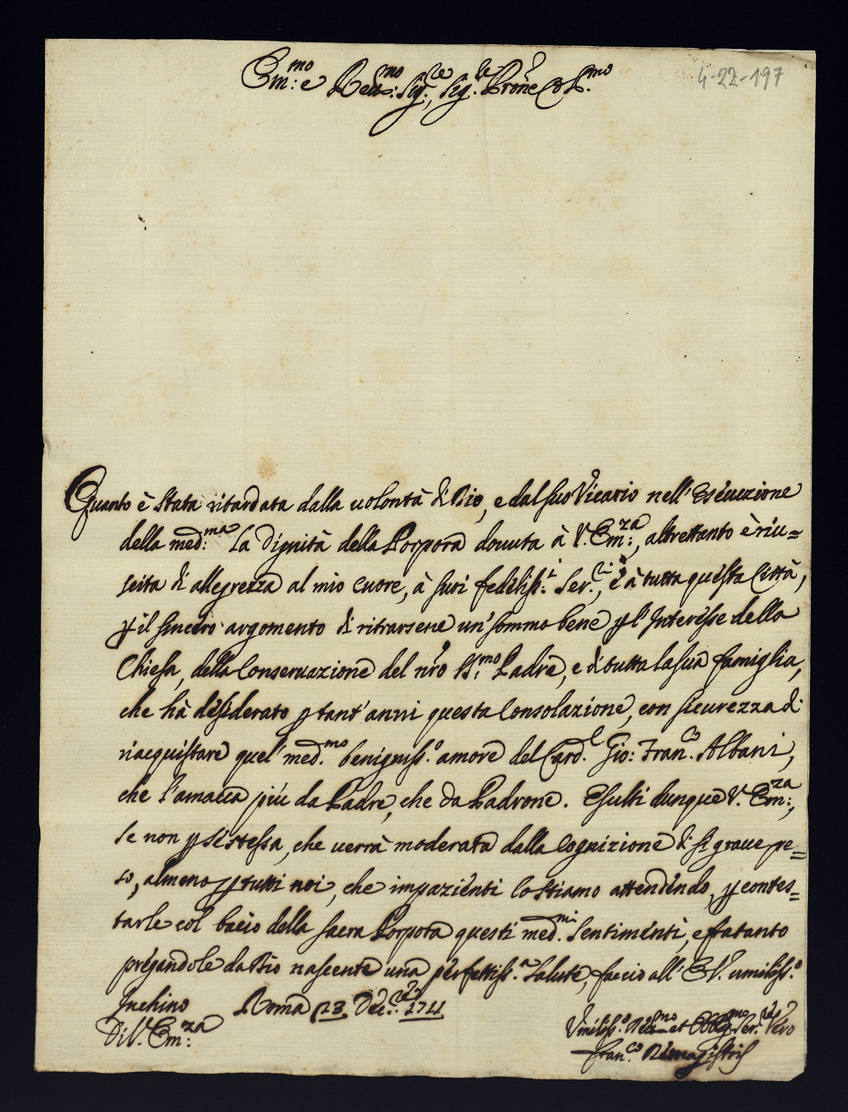 Em.mo e Rev.mo Sig.re, Sig.re Prone Col.mo
4-22-197
Quanto è stata ritardata dalla volontà di Dio, e dal suo Vicario nell'Esecuzione
della med.ma la dignità della Porpora douuta à V. Em.za, altrettanto è riu=
scita di allegrezza al mio cuore, à suoi fedeliss.i Ser.ri, e à tutta questa Città,
p il sincero argomento di ritrarsene un sommo bene p l'Interesse della
Chiesa, della Conseruazione del nro SS.mo Padre, e di tutta la sua famiglia,
che hà desiderato p tant'anni questa Consolazione, con sicurezza di
riacquistare quel med.mo beniguiss.o amore del Card.l Gio: Fran.co Albani,
che l'amaua più da Padre, che da Padrone. Esulti dunque V. Em.za,
se non p se stessa, che uerrà moderata dalla Cognizione di sì graue pe=
so, almeno p tutti noi, che impazienti lo stiamo attendendo, p contes=
tarle col bacio della sacra Porpora questi med.mi sentimenti, e fratanto
pregandole da Dio nascente una perfettiss.a salute, faccio all'E.V. umiliss.o
Inchino Roma 13 Dec.re 1711
Di V. Em.za
Vmiliss.o Deu.mo et Obblig.mo Ser.re Vero
Fran.co Demagistris